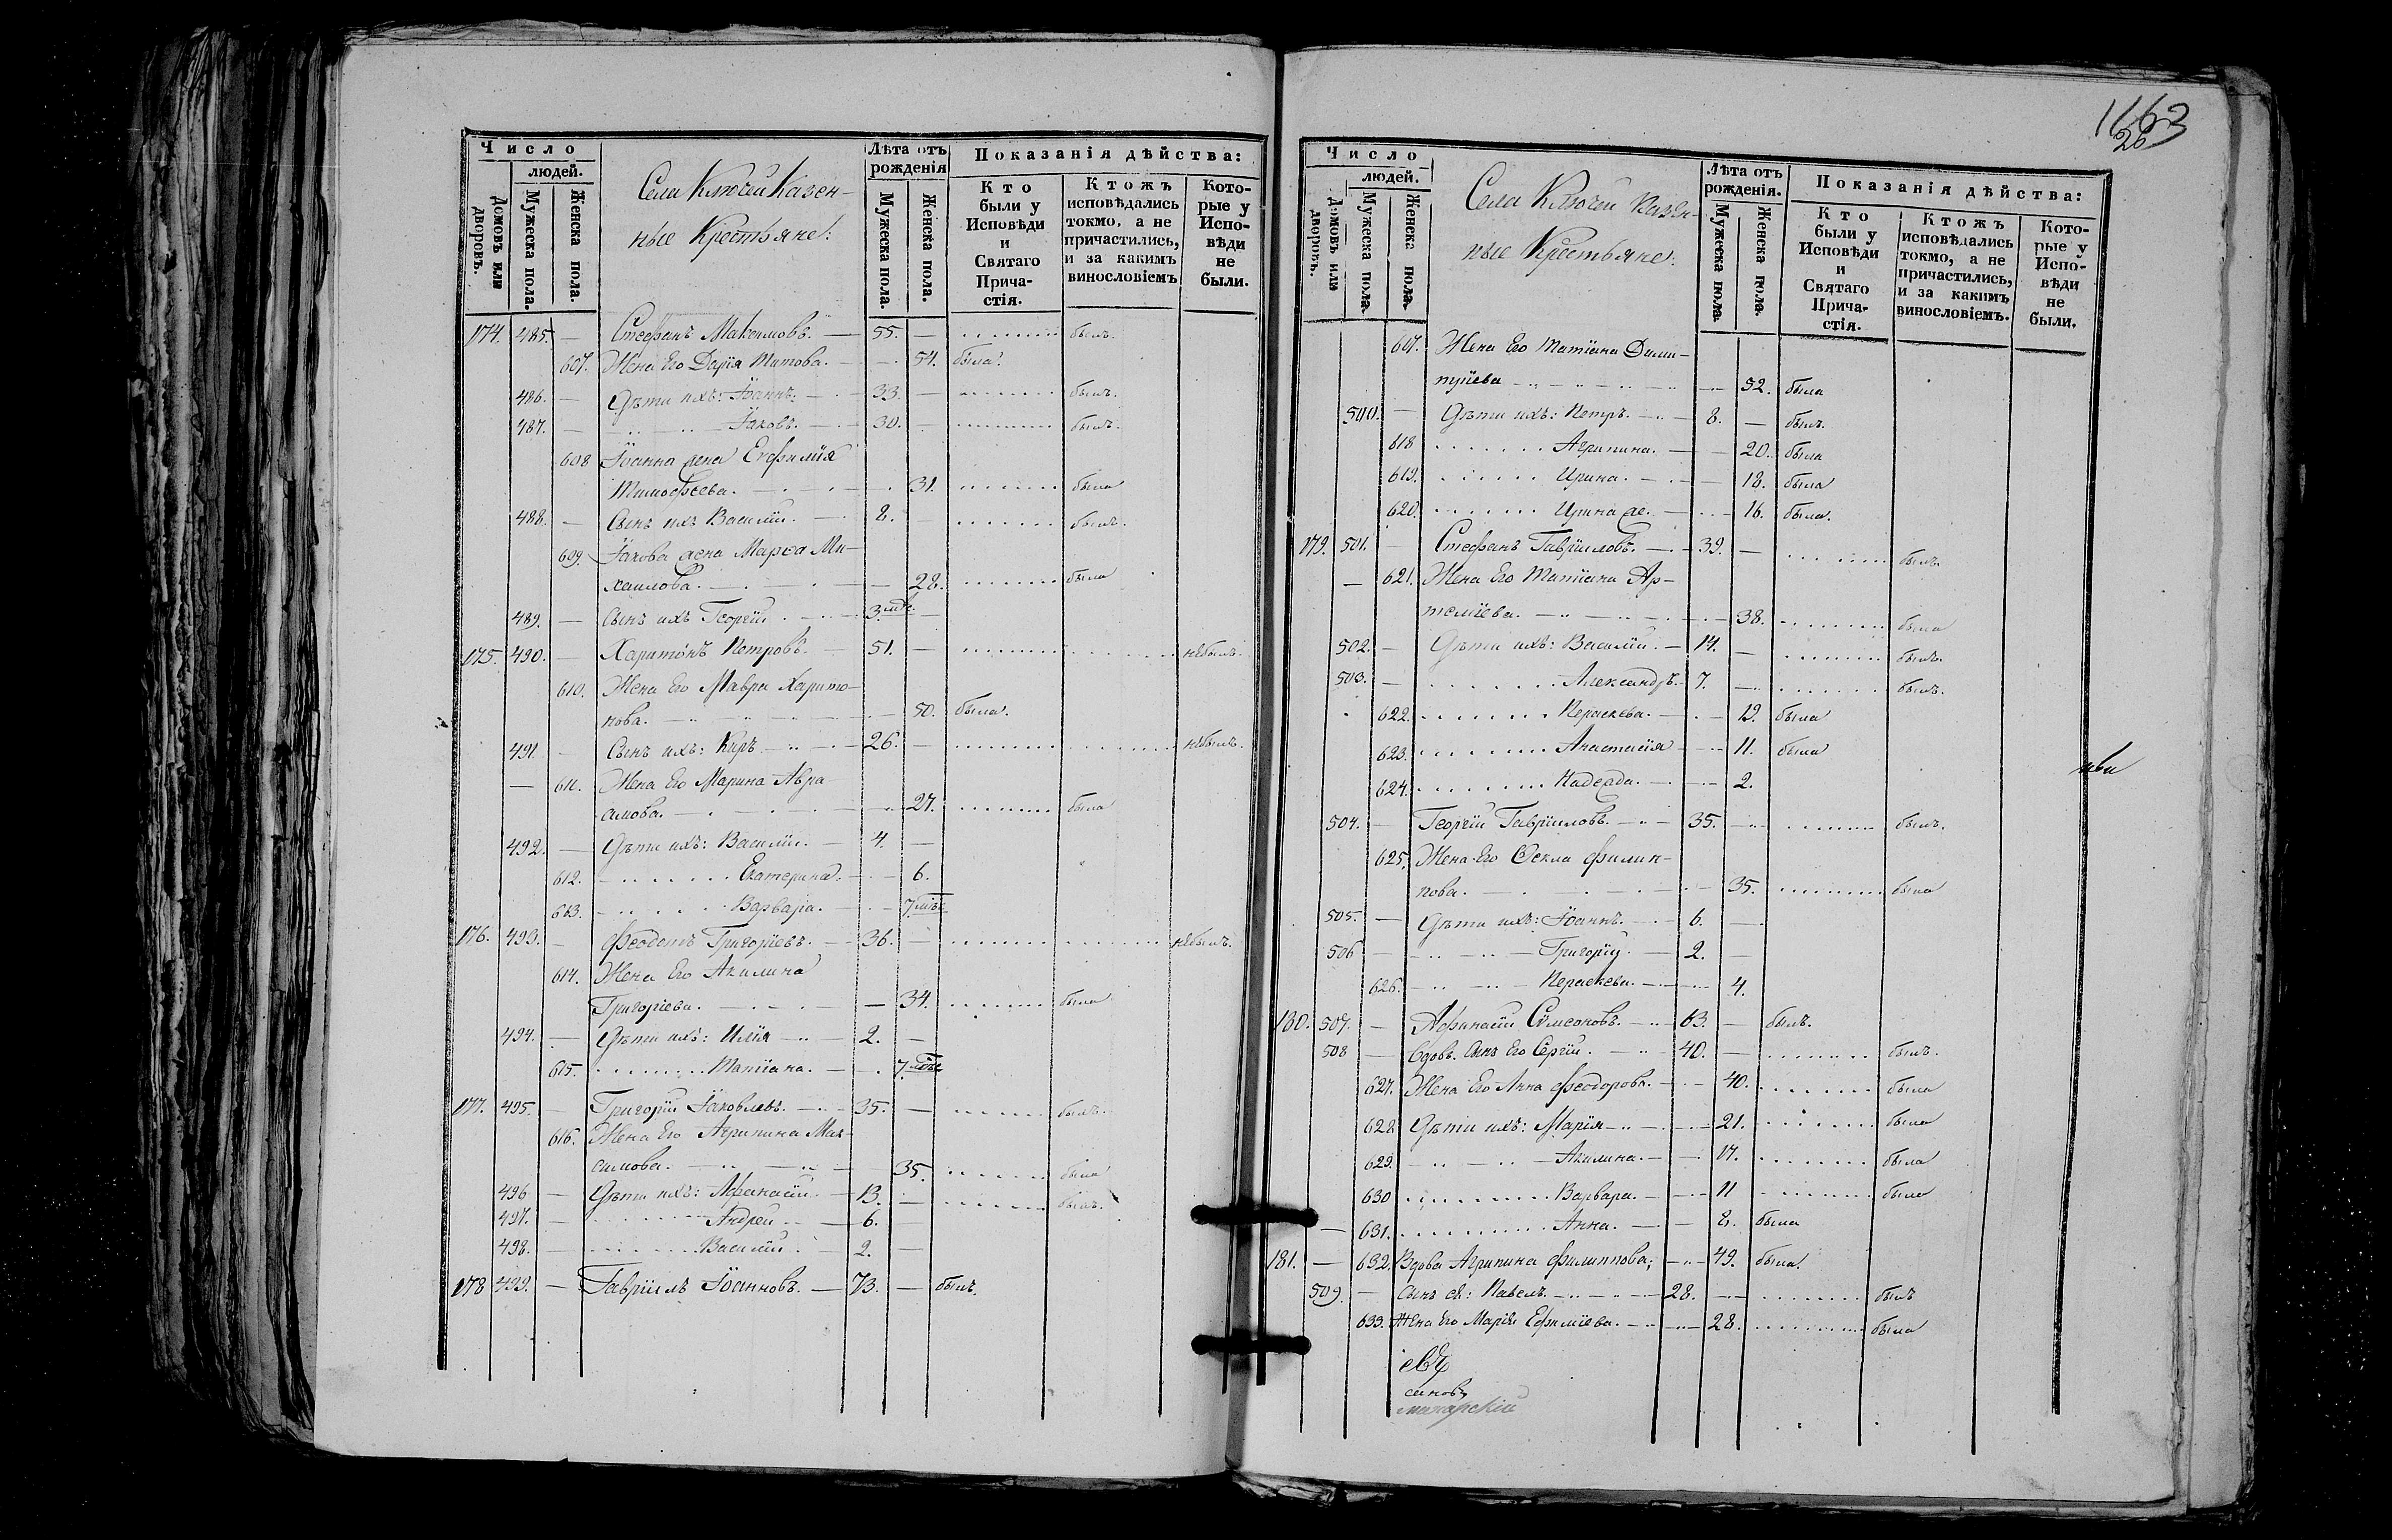 Число
людей.
Домовъ или дворовъ.
Мужеска пола.
Женска пола.
Села Ключей Казен-
ные Крестьяне:
Лѣта отъ рожденія
Мужеска пола.
Женска пола.
Показанія дѣйства:
Кто были у Исповѣди и Святаго Прича-стія.
Ктожъ исповѣдались токмо, а не причастились, и за какимъ винословіемъ
Кото-рые у Испо-вѣди не были.
174. 485. — Стефанъ Максимовъ. — 55. — былъ.
607. Жена Его Дарія Титова. — 54. была.
486. — Дѣти ихъ: Іоаннъ. — 33. — былъ.
487. — Іаковъ. — 30. — былъ.
608 Іоанна жена Евфимія
Тимофеева. — 31. была
488. — Сынъ ихъ Василій. — 8. — былъ.
609. Іакова жена Марѳа Ми-
хаилова. — 28. была
489. — Сынъ ихъ Георгій. — 3. мѣс. —
175. 490. — Харитонъ Петровъ. — 51. — небылъ.
610. Жена Его Мавра Харито-
нова. — 50. была.
491. — Сынъ ихъ: Киръ. — 26. — небылъ.
— 611. Жена Его Марина Авра-
амова. — 27. была
492. — Дѣти ихъ: Василій. — 4. —
612. Екатерина. — 6.
613. Варвара. — 7. мѣс
176. 493. — Феодотъ Григоріевъ. — 36. — небылъ.
614. Жена Его Акилина
Григоріева. — 34. была
494. — Дѣти ихъ: Илія — 2. —
615. Татіана. — 7. мѣс
177. 495. — Григорій Іаковлевъ. — 35. — былъ.
616. Жена Его Агрипина Мак-
симова. — 35. была
496 — Дѣти ихъ: Афанасій. — 13. — былъ.
497. — Андрей — 6. —
498. — Василій. — 2. —
178 499. — Гавріилъ Іоанновъ. — 73. — былъ.
1163
26
Число
людей.
Домовъ или дворовъ.
Мужеска пола.
Женска пола.
Села Ключей Казен-
ные Крестьяне:
Лѣта отъ рожденія.
Мужеска пола.
Женска пола.
Показанія дѣйства:
Кто были у Исповѣди и Святаго Прича-стія.
Ктожъ исповѣдались токмо, а не причастились, и за какимъ винословіемъ.
Кото-рые у Испо-вѣди не были.
617. Жена Его Татіана Дими-
тріева — 52. была
500. — Дѣти ихъ: Петръ. — 8. — былъ.
618 Агрипина. — 20. была
619. Ирина. — 18. была
620. Ирина же. — 16. была.
179. 501. — Стефанъ Гавріиловъ. — 39. — былъ.
— 621. Жена Его Татіана Ар-
теміева. — 38. была
502. — Дѣти ихъ: Василій. — 14. — былъ.
503. — Александръ. 7. — былъ.
622. Параскева. — 19. была
623. Анастасія — 11. была
624. Надежда. — 2.
504. — Георгій Гавріиловъ. — 35. — былъ.
625. Жена Его Ѳекла Филип-
пова. — 35. была
505. — Дѣти ихъ: Іоаннъ. — 6. —
506 — Григорій. — 2. —
626. Параскева. — 4.
180. 507. — Афанасій Симеоновъ. — 63. — былъ.
508 — Вдов. сынъ Его Сергій. — 40. — былъ.
627. Жена Его Анна Феодорова. — 40. была
628 Дѣти ихъ: Марія — 21. была
629. Акилина. — 17. была
630 Варвара. — 11 была
— 631. Анна. — 8. была
181. — 632. Вдова Агрипина Филиппова; — 49. была.
509. — Сынъ ея: Павелъ. — 28. — былъ
633. Жена Его Марія Ефиміева. — 28. была